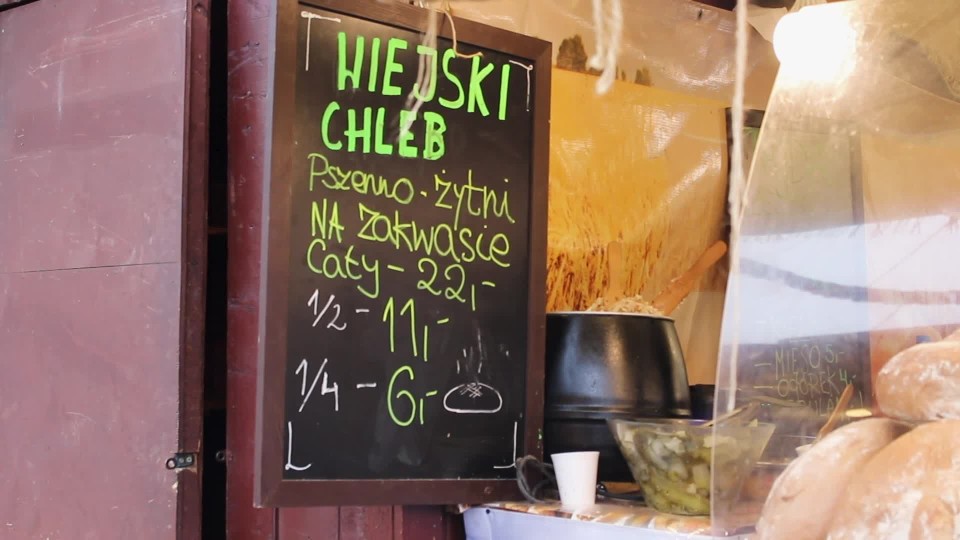 WIEJSKI
CHLEB
Pszenno-żytni
NA zakwasie
Cały - 22,-
1/2 - 11,-
1/4 - 6,-
- MIĘSO 5,-
- OGÓREK 4,-